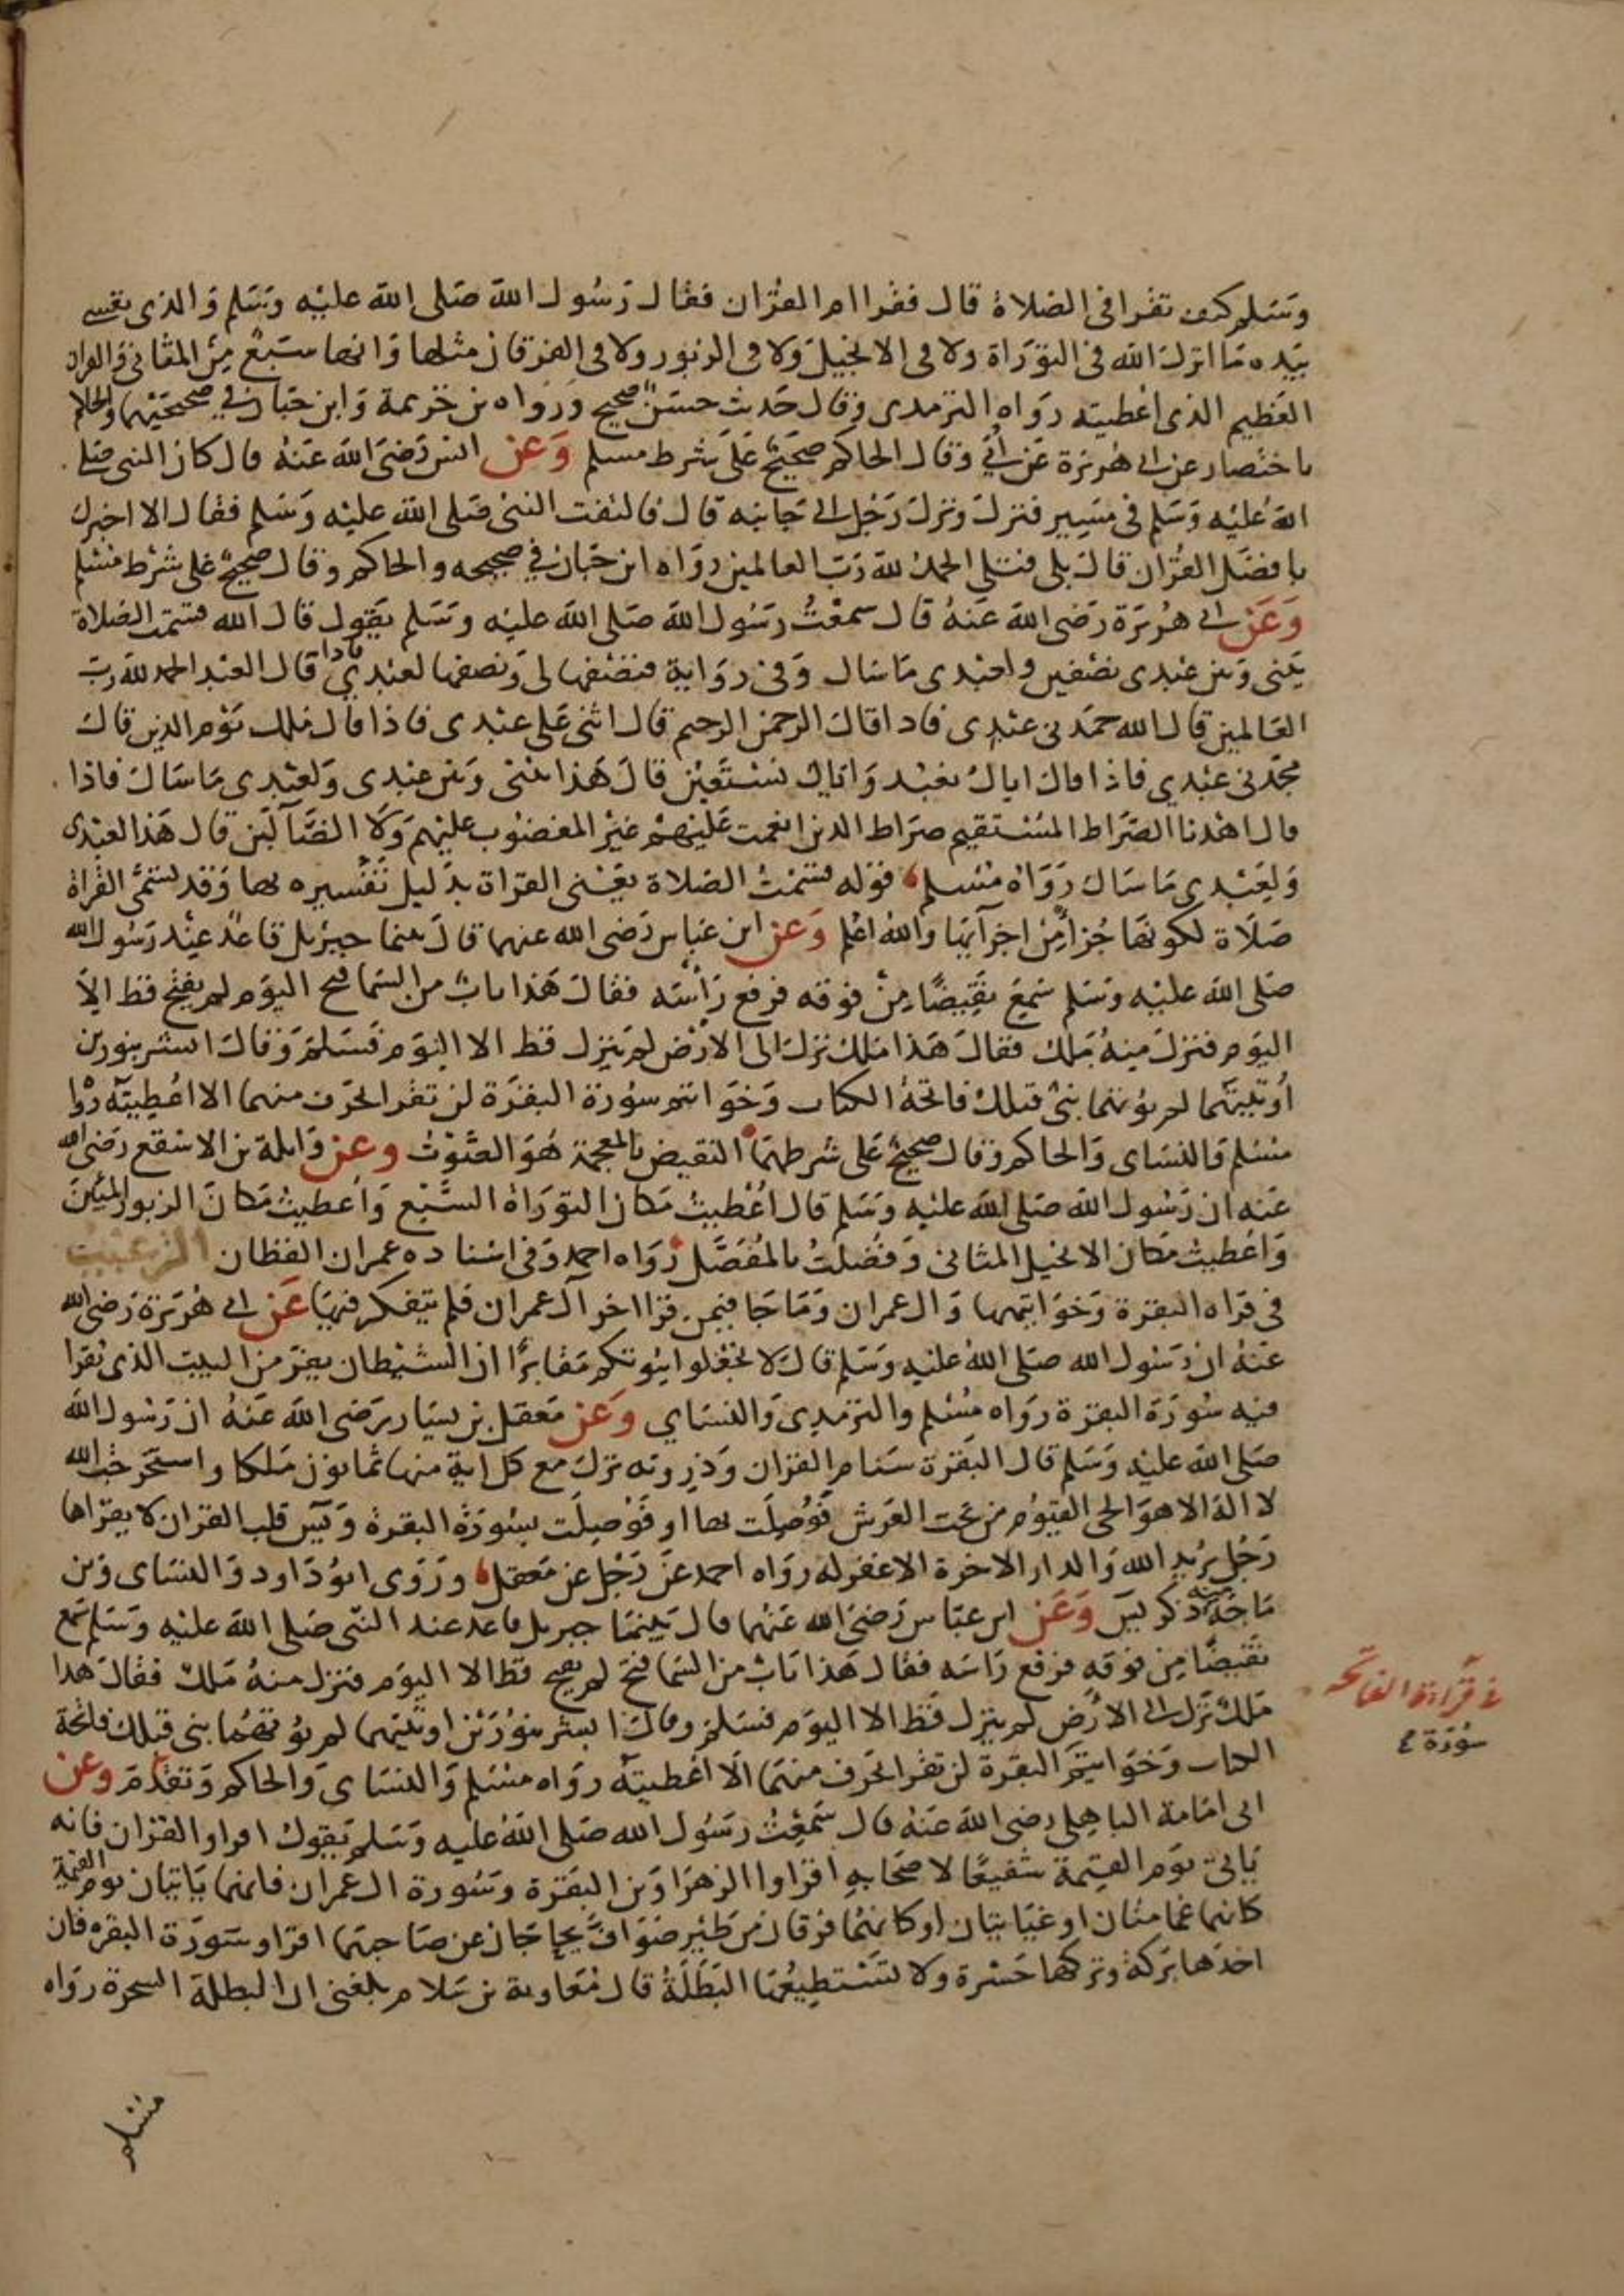 وسلم كيف تقرا في الصلاة قال فقرا ام القران فقال رسول الله صلى الله عليه وسلم والذي نفسي
بيده ما انزل الله في التوراة ولا في الانجيل ولا في الزبور ولا في الفرقان مثلها وانها سبع من المثاني والقران
العظيم الذي اعطيته رواه الترمذي وقال حديث حسن صحيح ورواه بن خزيمة وابن حبان في صحيحيهما والحاكم
باختصار عن ابي هريرة عن ابي وقال الحاكم صحيح على شرط مسلم وعن انس رضي الله عنه قال كان النبي صلى
الله عليه وسلم في مسير فنزل ونزل رجل الى جانبه قال فالتفت النبي صلى الله عليه وسلم فقال الا اخبرك
بافضل القران قال بلى فتلى الحمد لله رب العالمين رواه ابن حبان في صحيحه والحاكم وقال صحيح على شرط مسلم
وعن ابي هريرة رضي الله عنه قال سمعت رسول الله صلى الله عليه وسلم يقول قال الله قسمت الصلاة
بيني وبين عبدي نصفين ولعبدي ما سال وفي رواية فنصفها لي ونصفها لعبدي فاذا قال العبد الحمد لله رب
العالمين قال الله حمدني عبدي فاذا قال الرحمن الرحيم قال اثنى علي عبدي فاذا قال ملك يوم الدين قال
مجدني عبدي فاذا قال اياك نعبد واياك نستعين قال هذا بيني وبين عبدي ولعبدي ما سال فاذا
قال اهدنا الصراط المستقيم صراط الذين انعمت عليهم غير المغضوب عليهم ولا الضآلين قال هذا لعبدي
ولعبدي ما سال رواه مسلم قوله قسمت الصلاة يعني القراة بدليل تفسيره بها وقد تسمى القراة
صلاة لكونها جزا من اجزآيها والله اعلم وعن ابن عباس رضي الله عنهما قال بينما جبريل قاعد عند رسول الله
صلى الله عليه وسلم سمع نقيضا من فوقه فرفع رأسه فقال هذا باب من السما فتح اليوم لم يفتح قط الا
اليوم فنزل منه ملك فقال هذا ملك نزل الى الارض لم ينزل قط الا اليوم فسلم وقال ابشر بنورين
أوتيتهما لم يؤتهما نبي قبلك فاتحة الكتاب وخواتم سورة البقرة لن تقرا بحرف منهما الا اعطيته رواه
مسلم والنساي والحاكم وقال صحيح على شرطهما النقيض بالمعجمة هو الصوت وعن واثلة بن الاسقع رضي الله
عنه ان رسول الله صلى الله عليه وسلم قال اعطيت مكان التوراة السبع واعطيت مكان الزبور المئين
واعطيت مكان الانجيل المثاني وفضلت بالمفصل رواه احمد وفي اسناده عمران القطان الترغيب
في قراه البقرة وخواتيمها وال عمران وما جا فيمن قرا اخر آل عمران فلم يتفكر فيها عن ابي هريرة رضي الله
عنه ان رسول الله صلى الله عليه وسلم قال لا تجعلوا بيوتكم مقابر ان الشيطان يفر من البيت الذي تقرا
فيه سورة البقرة رواه مسلم والترمذي والنساي وعن معقل بن يسار رضي الله عنه ان رسول الله
صلى الله عليه وسلم قال البقرة سنام القران وذروته نزل مع كل اية منها ثمانون ملكا واستخرجت الله
لا اله الا هو الحي القيوم من تحت العرش فوصلت بها او فوصلت بسورة البقرة ويس قلب القران لا يقراها
رجل يريد الله والدار الاخرة الا غفر له رواه احمد عن رجل عن معقل وروى ابو داود والنساي وبن
ماجه منه ذكر يس وعن ابن عباس رضي الله عنهما قال بينما جبريل قاعد عند النبي صلى الله عليه وسلم سمع
نقيضا من فوقه فرفع راسه فقال هذا باب من السما فتح لم يفتح قط الا اليوم فنزل منه ملك فقال هذا
ملك نزل الى الارض لم ينزل قط الا اليوم فسلم وقال ابشر بنورين اوتيتهما لم يؤتهما نبي قبلك فاتحة
الكتاب وخواتيم البقرة لن تقرا بحرف منهما الا اعطيته رواه مسلم والنساي والحاكم وتقدم وعن
ابي امامة الباهلي رضي الله عنه قال سمعت رسول الله صلى الله عليه وسلم يقول اقراوا القران فانه
ياتي يوم القيمة شفيعا لاصحابه اقراوا الزهراوين البقرة وسورة ال عمران فانهما ياتيان يوم القيمة
كانهما غمامتان او غيايتان او كانهما فرقان من طير صواف يحاجان عن صاحبهما اقراو سورة البقره فان
اخذها بركة وتركها حسرة ولا تستطيعها البطلة قال معاوية بن سلام بلغني ان البطلة السحرة رواه
مسلم
في قرآءة الفاتحة
سورة